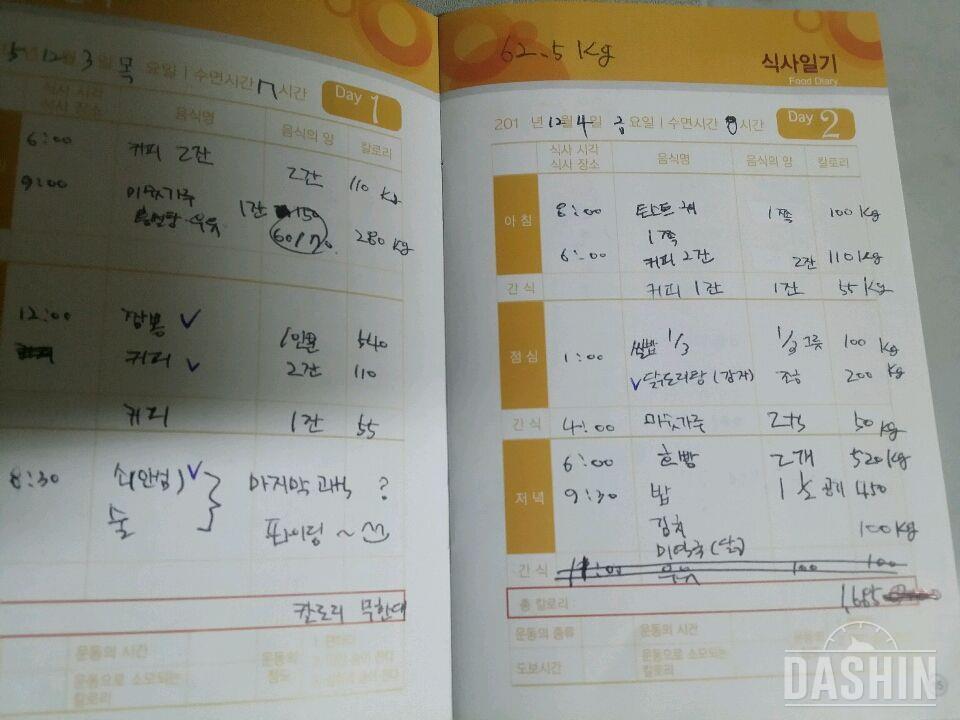 5 12월 3일 목 요일 | 수면시간 7시간 Day 1
식사 시각
식사 장소
음식명 음식의 양 칼로리
6:00 커피 2잔 2잔 110 kg
9:00 미숫가루 1잔 150
우유 60/70 280 kg
12:00 짬뽕 ✓ 1인분 540
커피 ✓ 2잔 110
커피 1잔 55
8:30 ✓ 마지막 과식 ?
술 파이팅 ~
칼로리 무한대
운동의 시간
운동으로 소모되는
칼로리
62.5 kg
식사일기
Food Diary
201 년 12월 4일 금요일 | 수면시간 8시간 Day 2
식사 시각
식사 장소
음식명 음식의 양 칼로리
아침 8:00 토스트 1쪽 100 kg
1쪽
6:00 커피 2잔 2잔 110 kg
간식 커피 1잔 1잔 55 kg
점심 1:00 쌀밥 1/3 1/3 그릇 100 kg
✓닭도리탕 (감자) 조금 200 kg
간식 4:00 미숫가루 50 kg
저녁 6:00 호빵 2개 520 kg
9:30 밥 1 공기 450
김치 100 kg
미역국 (닭)
간식 11:00 우유 100 100
총 칼로리 1,685
운동의 종류 운동의 시간
도보시간 운동으로 소모되는
칼로리
DASHIN